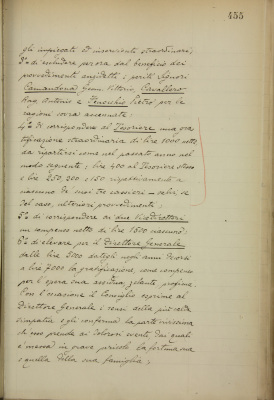 455
gli impiegati ed inservienti straordinari;
3° di escludere per ora dal beneficio dei
provvedimenti anzidetti i periti Signori
Camandona Geom. Vittorio, Cavallero
Rag. Antonio e Pietro per le
ragioni sovra accennate;
4° di corrispondere al Tesoriere una gra
tificazione straordinaria di lire 1000 netto
da ripartirsi come nel passato anno nel
modo seguente; lire 400 al Tesoriere stesso
e lire 250, 200 e 150 rispettivamente a
ciascuno dei suoi tre cassieri - salvi, se
del caso, ulteriori provvedimenti;
5° di corrispondere ai due Vicedirettori
un compenso netto di lire 1500 ciascuno;
6° di elevare per il Direttore Generale
dalle lire 5000 datogli negli anni scorsi
a lire 7000 la gratificazione, come compenso
per l'opera sua assidua, zelante, proficua.
Con l'occasione il Consiglio esprime al
Direttore Generale i sensi della più calda
simpatia e gli conferma la parte vivissima
che esso prende ai dolorosi eventi dai quali
è messa in grave pericolo la fortuna sua
e quella della sua famiglia;